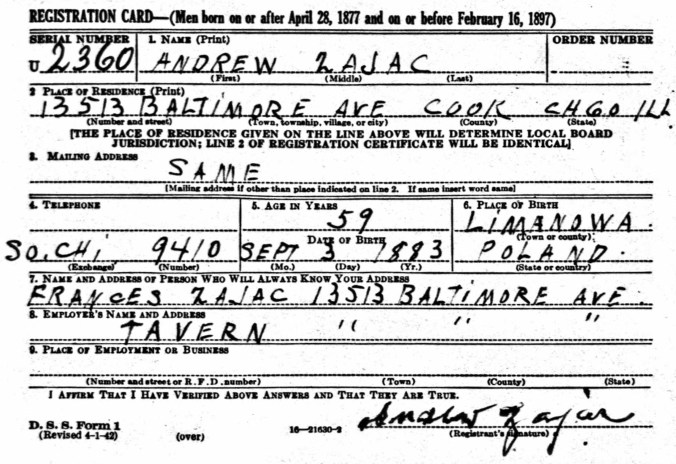 REGISTRATION CARD—(Men born on or after April 28, 1877 and on or before February 16, 1897)
SERIAL NUMBER 1. NAME (Print) ORDER NUMBER
U 2360 ANDREW ZAJAC
(First) (Middle) (Last)
2 PLACE OF RESIDENCE (Print)
13513 BALTIMORE AVE COOK CHGO ILL
(Number and street) (Town, township, village, or city) (County) (State)
[THE PLACE OF RESIDENCE GIVEN ON THE LINE ABOVE WILL DETERMINE LOCAL BOARD
JURISDICTION; LINE 2 OF REGISTRATION CERTIFICATE WILL BE IDENTICAL]
3. MAILING ADDRESS
SAME
[Mailing address if other than place indicated on line 2. If same insert word same]
4. TELEPHONE 5. AGE IN YEARS 6. PLACE OF BIRTH
59 LIMANOWA.
DATE OF BIRTH (Town or county)
SO. CHi 9410 SEPT 3 1883 POLAND.
(Exchange) (Number) (Mo.) (Day) (Yr.) (State or country)
7. NAME AND ADDRESS OF PERSON WHO WILL ALWAYS KNOW YOUR ADDRESS
FRANCES ZAJAC 13513 BALTIMORE AVE.
8. EMPLOYER'S NAME AND ADDRESS
TAVERN " " "
9. PLACE OF EMPLOYMENT OR BUSINESS
(Number and street or R. F. D. number) (Town) (County) (State)
I AFFIRM THAT I HAVE VERIFIED ABOVE ANSWERS AND THAT THEY ARE TRUE.
D. S. S. Form 1 Andrew Zajac
(Revised 4-1-42) (over) 16—21630-2 (Registrant's signature)